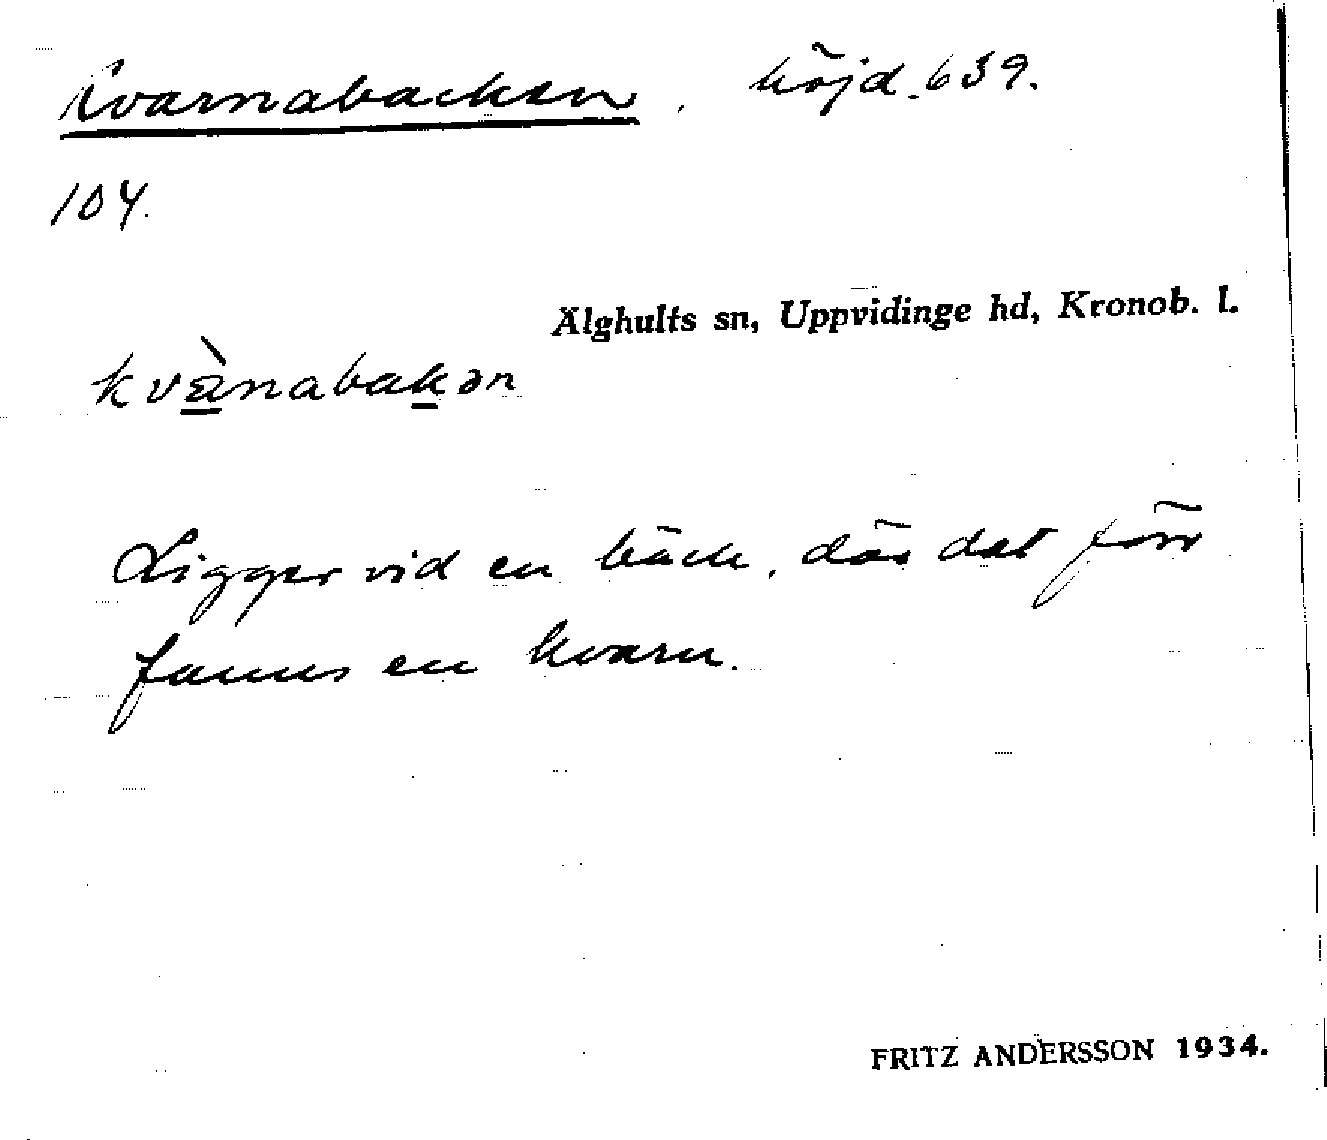 Kvarnabacken, höjd. 639.
104.
Älghults sn, Uppvidinge hd, Kronob. l.
kvæ̀nabakən
Ligger vid en bäck, där det förr
fanns en kvarn.
FRITZ ANDERSSON 1934.